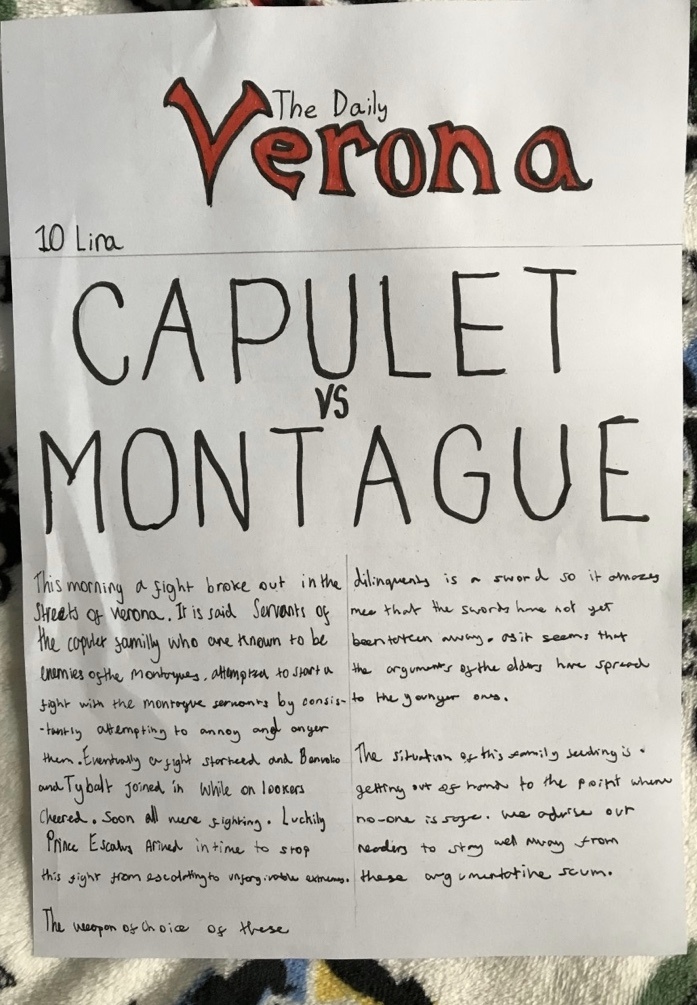 The Daily
Verona
10 Lira
CAPULET
VS
MONTAGUE
This morning a fight broke out in the
Streets of Verona. It is said Servants of
the capulet familly who are known to be
enemies of the Montagues, attempted to start a
fight with the montague servants by consis-
-tantly attempting to annoy and anger
them. Eventually a fight started and Benvolio
and Tybalt Joined in while on lookers
cheered. Soon all were fighting. Luckily
Prince Escalus Arrived in time to stop
this fight from escalating to unforgivable extremes.
The weapon of choice of these
dilinquents is a sword so it amazes
mee that the swords have not yet
been taken away. as it seems that
the arguments of the elders have spread
to the younger ones.
The situation of this family feuding is
getting out of hand to the point where
no-one is safe. we advise our
readers to stay well away from
these argumentative scum.